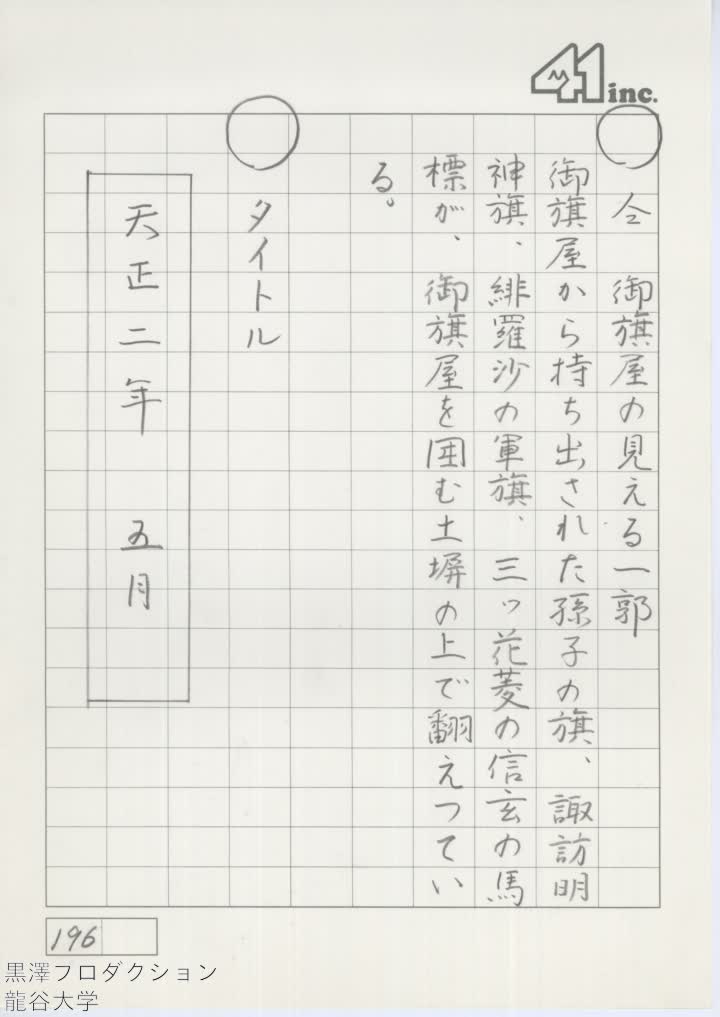 41 inc.
〇 仝 御旗屋の見える一郭
御旗屋から持ち出された孫子の旗、諏訪明
神旗、緋羅沙の軍旗、三ッ花菱の信玄の馬
標が、御旗屋を囲む土塀の上で翻えつてい
る。
〇 タイトル
天正二年 五月
196
黒澤プロダクション
龍谷大学